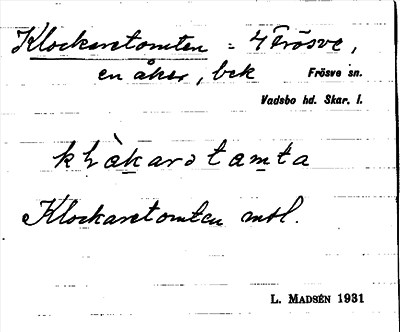 Klockaretomten = 4 Frösve,
en åker, bek
Frösve sn.
Vadsbo hd. Skar. l.
Klockaretomten mtl.
L. MADSÉN 1931